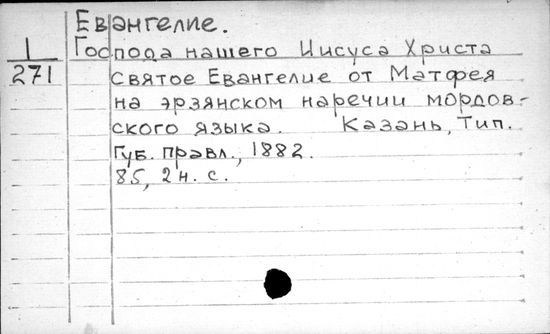 Евангелие.
1
271
Господа нашего Иисуса Христа
святое Евангелие от Матфея
на эрзянском наречии мордов-
ского языка. Казань, Тип.
Губ. правл., 1882.
85, 2 н. с.